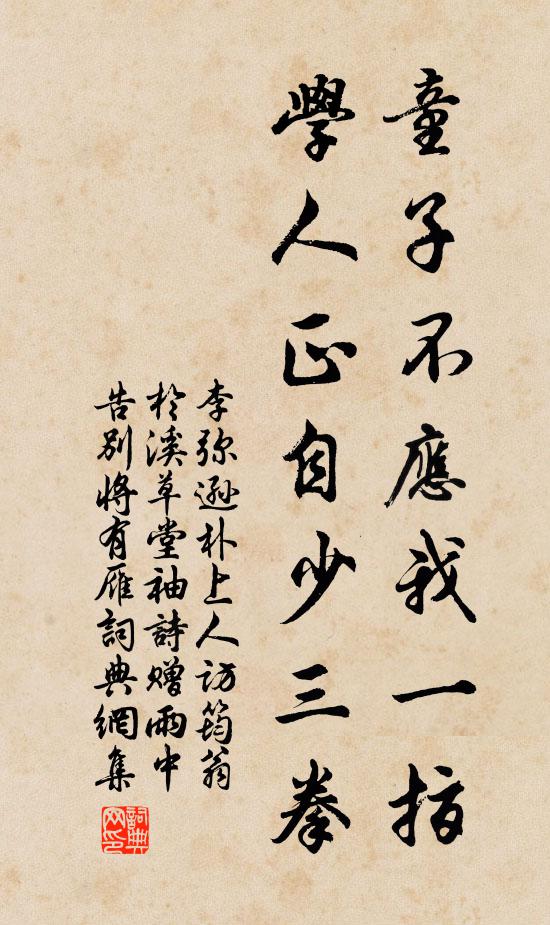 童子不應我一指
學人正自少三拳
李弥遜朴上人访筠翁
於溪草堂袖詩赠雨中
告别将有雁詞典網集
詞典网印